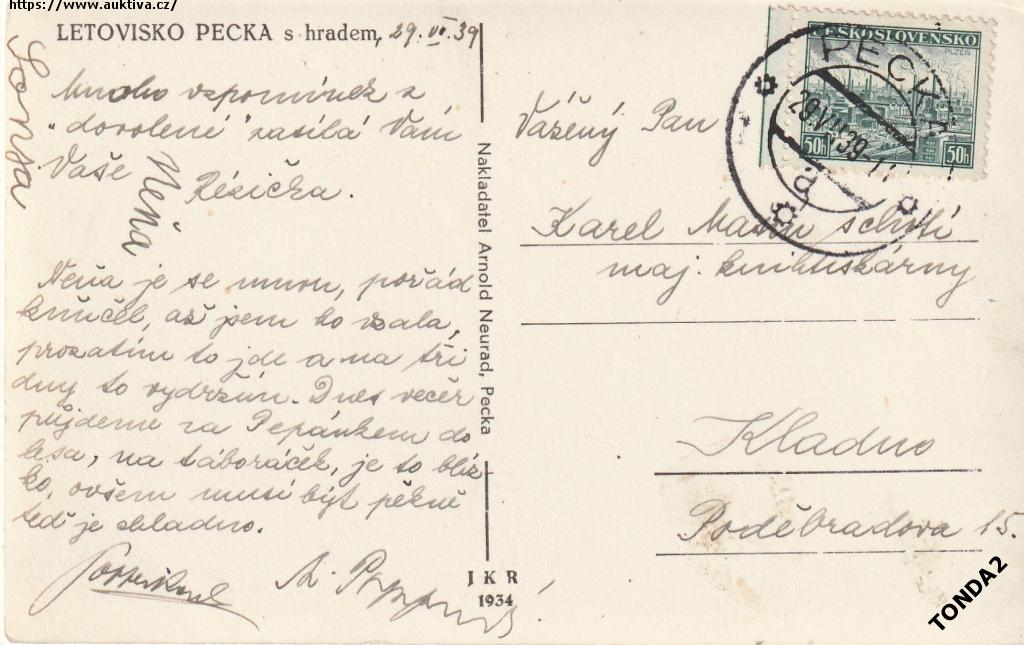 https://www.auktiva.cz/
LETOVISKO PECKA s hradem, 29. VII. 39
Sonja
Mnoho vzpomínek z
"dovolené" zasílá Vám
Vaše Rézička.
Neňa
Neňa je se mnou, pořád
kňučel, až jsem ho vzala,
prozatím to jde a na tři
dny to vydržím. Dnes večer
půjdeme za Pepánkem do
lesa, na táboráček, je to blíz-
ko, ovšem musí být pěkně
teď je chladno.
Nakladatel Arnold Neurad, Pecka
JKR
1934
ČESKOSLOVENSKO
PLZEŇ
50h 50h
PECKA
29.VII.39-11
a
Vážený Pan
Karel
maj. knihtiskárny
Kladno
Poděbradova 15.
TONDA2